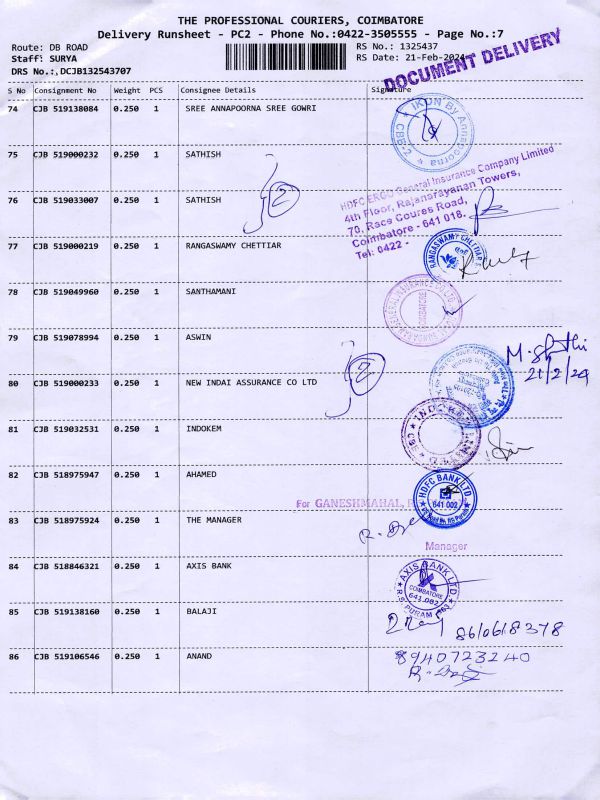 THE PROFESSIONAL COURIERS, COIMBATORE
Delivery Runsheet - PC2 - Phone No.:0422-3505555 - Page No.:7
Route: DB ROAD
RS No.: 1325437
Staff: SURYA
RS Date: 21-Feb-2024
DRS No.:,DCJB132543707
DOCUMENT DELIVERY
S No Consignment No Weight PCS Consignee Details Signature
74 CJB 519138084 0.250 1 SREE ANNAPOORNA SREE GOWRI
IKON By Annapoorna
CBE-2
75 CJB 519000232 0.250 1 SATHISH
2
HDFC ERGO General Insurance Company Limited
4th Floor, Rajanarayanan Towers,
70, Race Coures Road,
Coimbatore - 641 018.
Tel: 0422 -
76 CJB 519033007 0.250 1 SATHISH
77 CJB 519000219 0.250 1 RANGASWAMY CHETTIAR
RANGASWAMY CHETTIAR
78 CJB 519049960 0.250 1 SANTHAMANI
COIMBATORE
79 CJB 519078994 0.250 1 ASWIN
21/2/24
2
80 CJB 519000233 0.250 1 NEW INDAI ASSURANCE CO LTD
81 CJB 519032531 0.250 1 INDOKEM
82 CJB 518975947 0.250 1 AHAMED
HDFC BANK LTD
641 002
For GANESHMAHAL,
83 CJB 518975924 0.250 1 THE MANAGER
Manager
84 CJB 518846321 0.250 1 AXIS BANK
AXIS BANK LTD
COIMBATORE
641 002
R.S. PURAM
85 CJB 519138160 0.250 1 BALAJI
86 CJB 519106546 0.250 1 ANAND
8940723240